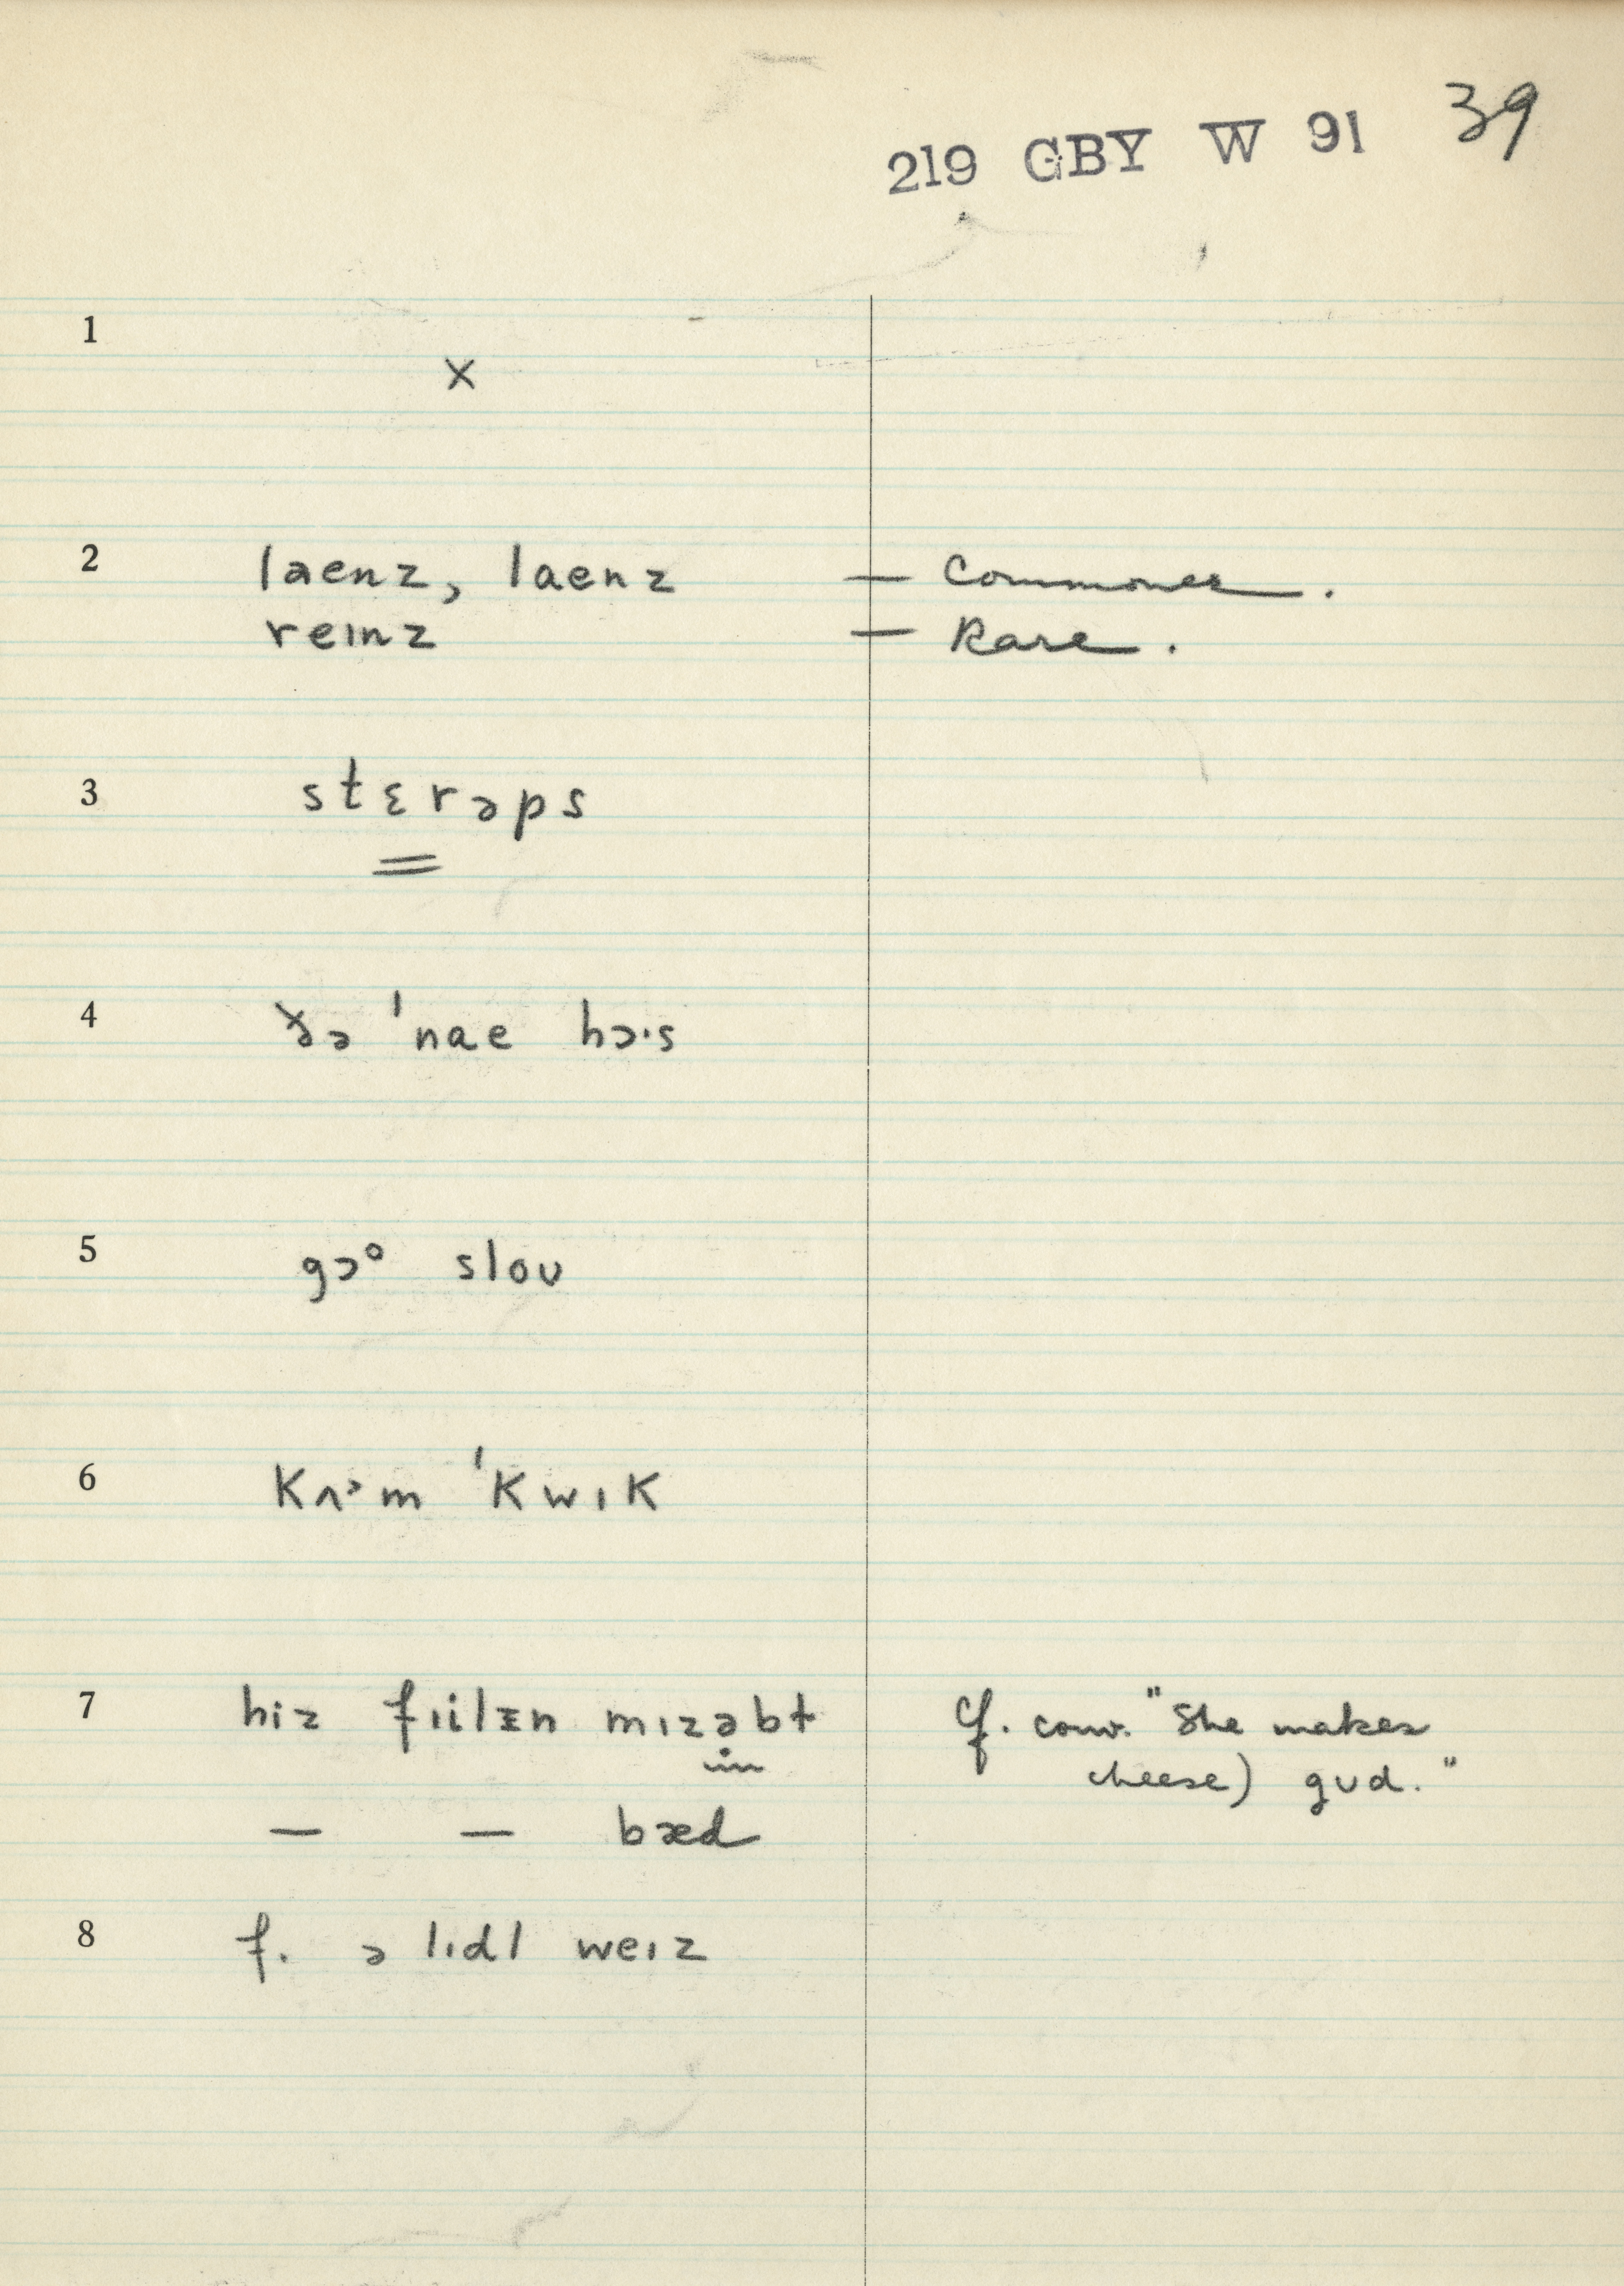 219 GBY W 91 39
1 x
2 laenz, laenz — Commoner.
reinz — Rare.
3 stɛrəps
4 ðə 'nae hɔ·s
5 gɔᵒ slou
6 Kʌᵊm 'KwıK
7 hiz fıilɪn mızəbt cf. conv. "She makes
cheese) gud."
— — bæd
8 f. ə lıdl weız